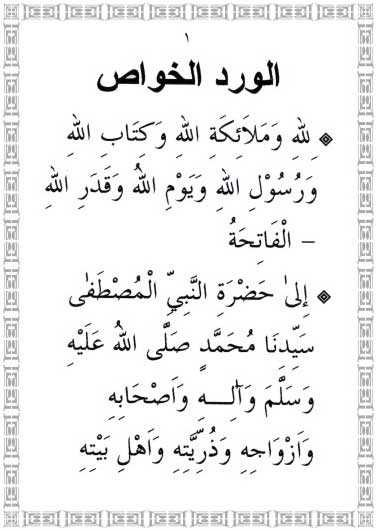 ١
الورد الخواص
لِلهِ وَمَلَائِكَةِ اللهِ وَكِتَابِ اللهِ
وَرُسُوْلِ اللهِ وَيَوْمِ اللهُ وَقَدَرِ اللهِ
– الْفَاتِحَةُ
إِلىٰ حَضْرَةِ النَّبِيِّ الْمُصْطَفٰى
سَيِّدِنَا مُحَمَّدٍ صَلَّى اللهُ عَلَيْهِ
وَسَلَّمَ وَآلِـــهِ وَاَصْحَابِهِ
وَاَزْوَاجِهِ وَذُرِّيَّتِهِ وَاَهْلِ بَيْتِهِ